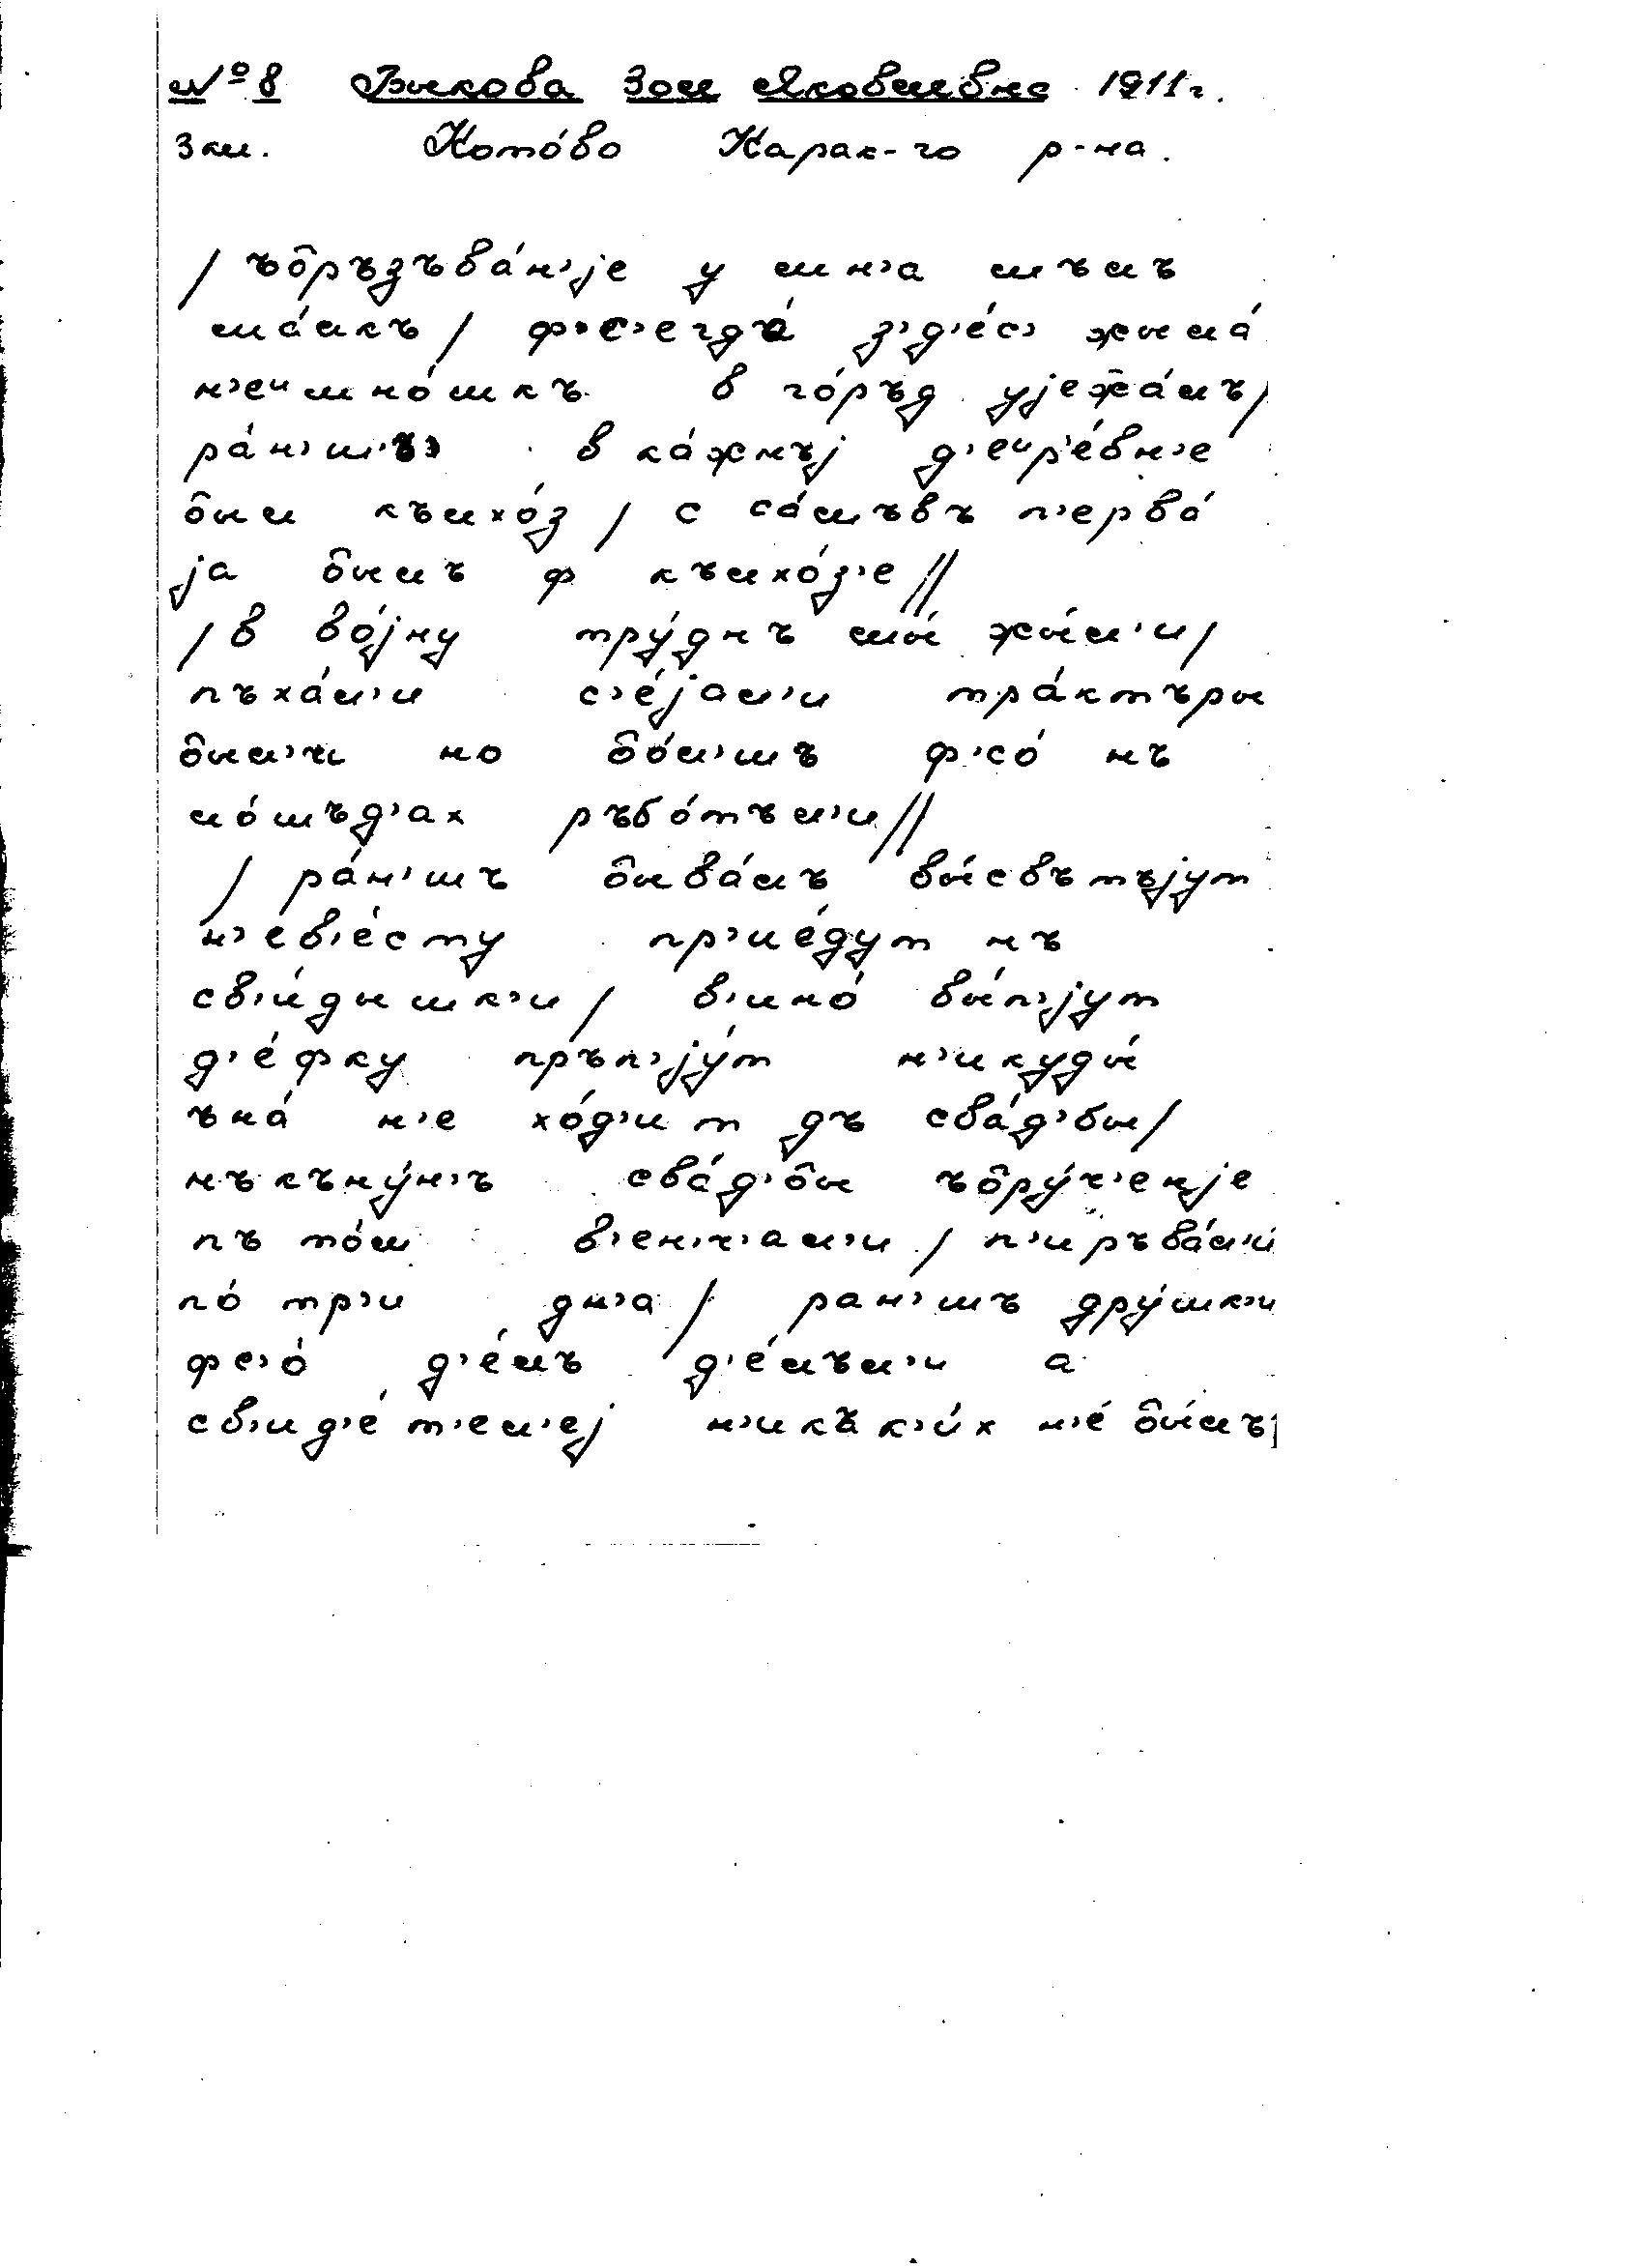 № 8 Быкова Зоя Яковлевна 1911 г.
3 кл. Котóво Карак-го р-на.
/ ъбръзъвáн'јe у мн'а мъ̆лъ
мáлкъ / ф'с'егдá з'д'éс' жылá
н'еᶦмнóшкъ в гóръд ујежáлъ /
рáн'ш'ъ в кáжнъј д'еᶦр'éвн'е
был кълхóз / с сáмъвъ п'ервá
ја былъ ф кълхóз'е //
/ в вóјну трýднъ мы́ жы́л'и /
пъхáл'и с'éјал'и трáктъры
был'и но бóл'шъ ф'сó нъ
лóшъд'ах ръбóтъл'и //
/ рáн'шъ бывáлъ вы́свътъјут
н'ев'éсту пр'иéдут нъ
св'и́дышк'и / в'инó вы́п'јут
д'éфку пръп'јýт н'икуды́
ънá н'е хóд'ит дъ свáд'бы /
нъкънýн'ъ свáд'бы ъбрýч'енје
пъ тóм в'ен'ч'ал'и / п'иръвáл'и
пó тр'и дн'а / ран'шъ дрýшк'и
фс'ó д'éлъ д'éлъл'и а
св'ид'éт'ел'еј н'икък'и́х н'é бы́лъ /